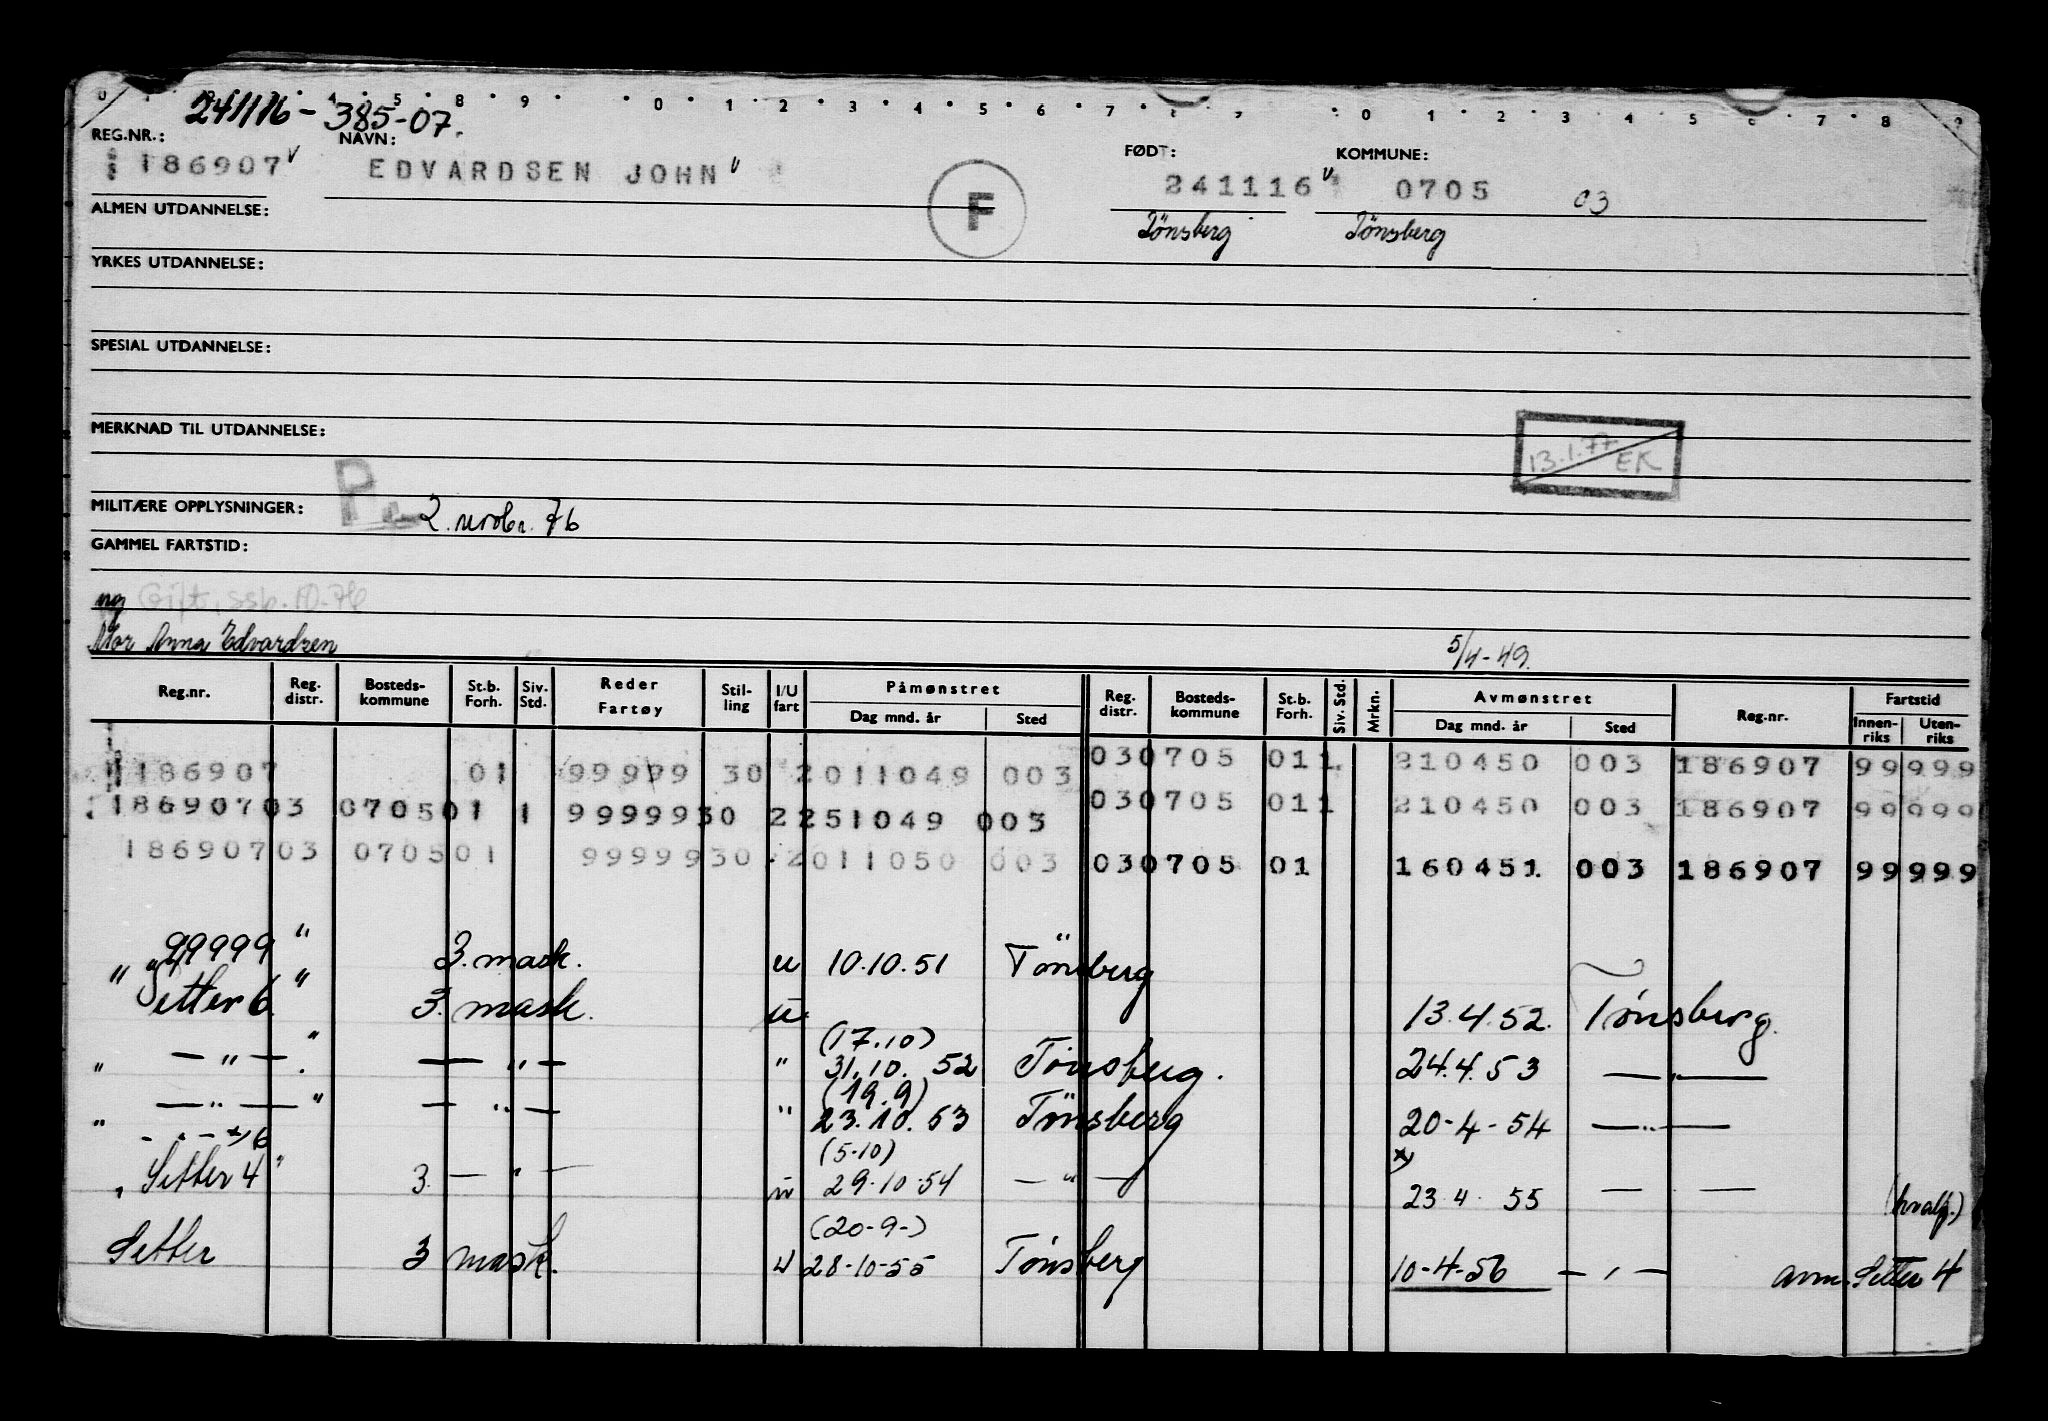 241116-385-07.
REG.NR.: NAVN: FØDT: KOMMUNE:
186907 EDVARDSEN JOHN 241116 0705 03
ALMEN UTDANNELSE: F Tönsberg Tönsberg
YRKES UTDANNELSE:
SPESIAL UTDANNELSE:
MERKNAD TIL UTDANNELSE:
13.1.77 EK
MILITÆRE OPPLYSNINGER: P 2. novbr. 76
GAMMEL FARTSTID:
ug Gift, ssb. 10.76
Mor Anna Edvardsen 5/4-49.
Reg.nr. Reg. distr. Bosteds-kommune St.b. Forh. Siv. Std. Reder Fartøy Stil-ling I/U fart Påmønstret Dag mnd. år Sted Reg. distr. Bosteds-kommune St.b. Forh. Siv. Std. Mrkn. Avmønstret Dag mnd. år Sted Reg.nr. Fartstid Innen-riks Uten-riks
186907 01 99999 30 2011049 003 030705 011 210450 003 186907 99999
18690703 070501 1 9999930 2251049 003 030705 011 210450 003 186907 99999
18690703 070501 9999930 2011050 003 030705 01 160451 003 186907 99999
99999 " 3. mask. u 10.10.51 Tönsberg
" Setter 6 " 3. mask. u 13.4.52. Tønsberg.
(17.10)
" — " — " — " — " 31.10. 52 Tönsberg. 24.4.53 — " —
(19.9)
" — " — " — " — " 23.10.53 Tönsberg 20-4-54 — " —
- " - x) 6 (5-10) x)
" Setter 4 " 3. — " — u 29.10.54 — " — 23.4.55 — — (hvalf.)
(20-9-)
Setter 3 mask. u 28-10-55 Tønsberg 10-4-56 — " — avm. Setter 4